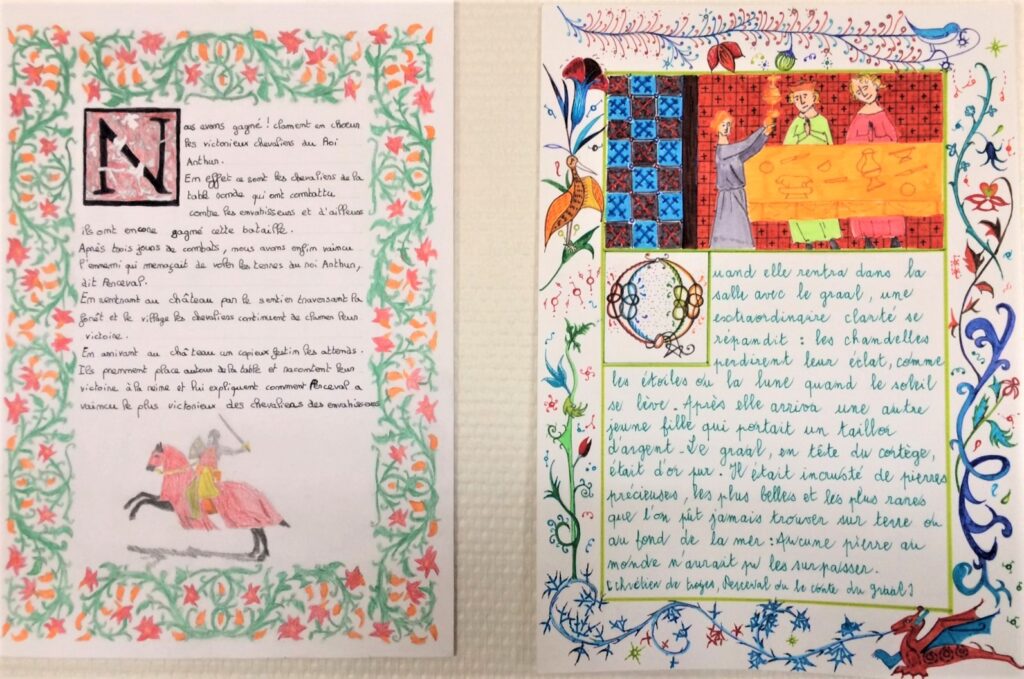 Nous avons gagné ! clament en choeur
les victorieux chevaliers du Roi
Arthur.
En effet ce sont les chevaliers de la
table ronde qui ont combattu
contre les envahisseurs et d'ailleurs
ils ont encore gagné cette bataille.
Après trois jours de combats, nous avons enfin vaincu
l'ennemi qui menaçait de voler les terres du roi Arthur,
dit Perceval.
En rentrant au château par le sentier traversant la
forêt et le village les chevaliers continuent de clamer leur
victoire.
En arrivant au château un copieux festin les attends.
Ils prennent place autour de la table et racontent leur
victoire à la reine et lui expliquent comment Perceval a
vaincu le plus victorieux des chevaliers des envahisseurs
Quand elle rentra dans la
salle avec le graal, une
extraordinaire clarté se
répandit : les chandelles
perdirent leur éclat, comme
les étoiles ou la lune quand le soleil
se lève. Après elle arriva une autre
jeune fille qui portait un tailloir
d'argent. Le graal, en tête du cortège,
était d'or pur. Il était incrusté de pierres
précieuses, les plus belles et les plus rares
que l'on pût jamais trouver sur terre ou
au fond de la mer : Aucune pierre au
monde n'aurait pu les surpasser.
[Chrétien de troyes, Perceval ou le conte du graal]